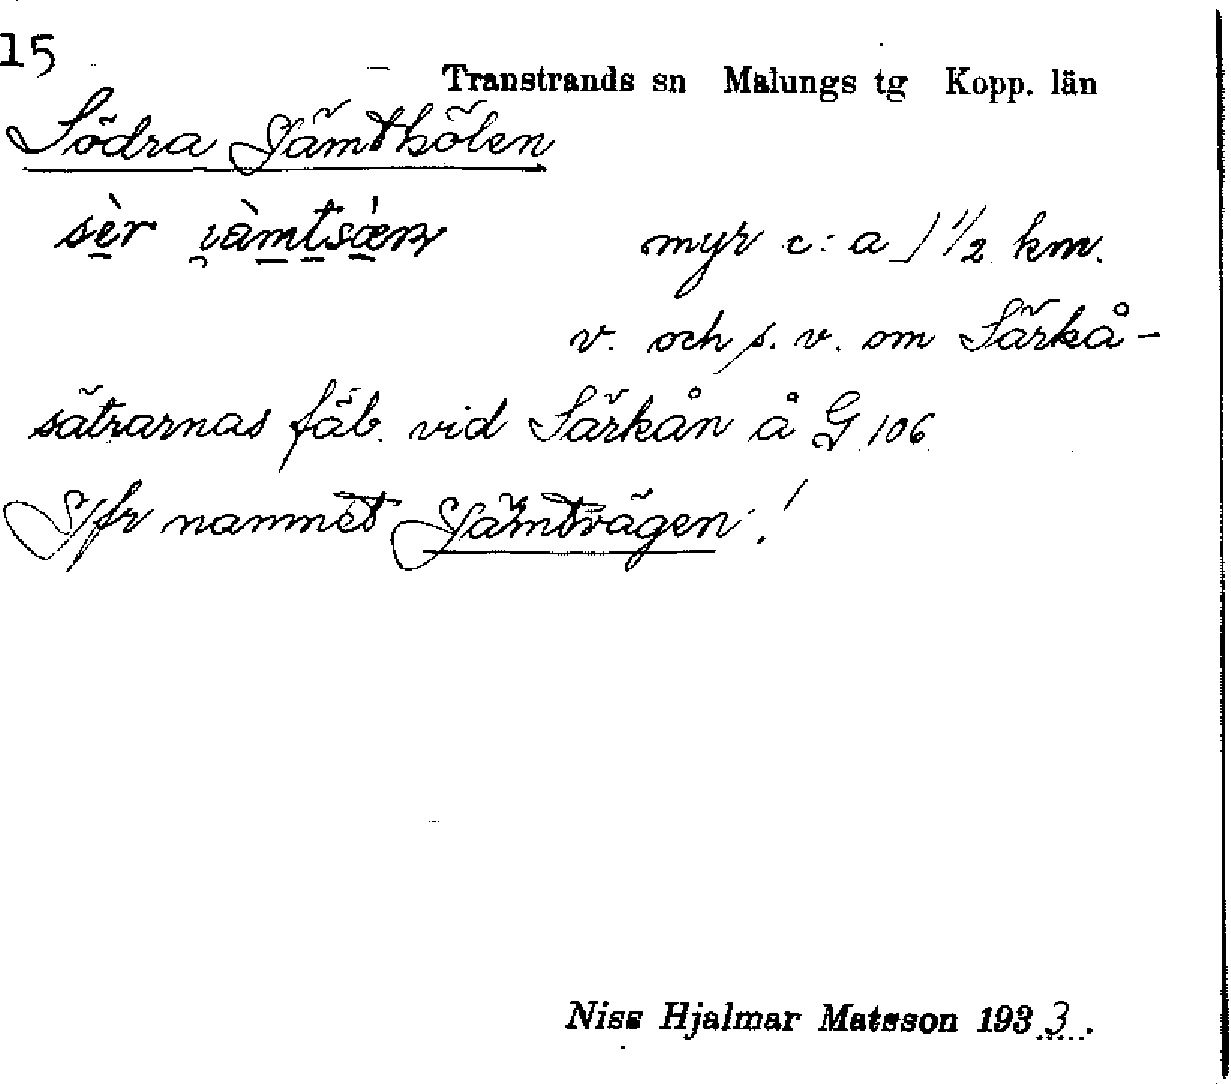 15
Transtrands sn Malungs tg Kopp. län
Södra Jämthölen
myr c:a 1 1/2 km.
v. och s. v. om Särkå-
sätrarnas fäb. vid Särkån å G 106
Jfr namnet Jämtvägen!
Niss Hjalmar Matsson 1933.